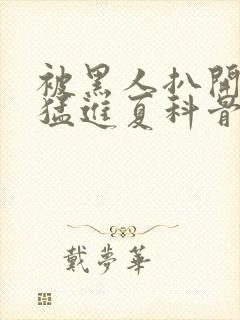 被黑人扒開
猛進夏科晋
戴夢華